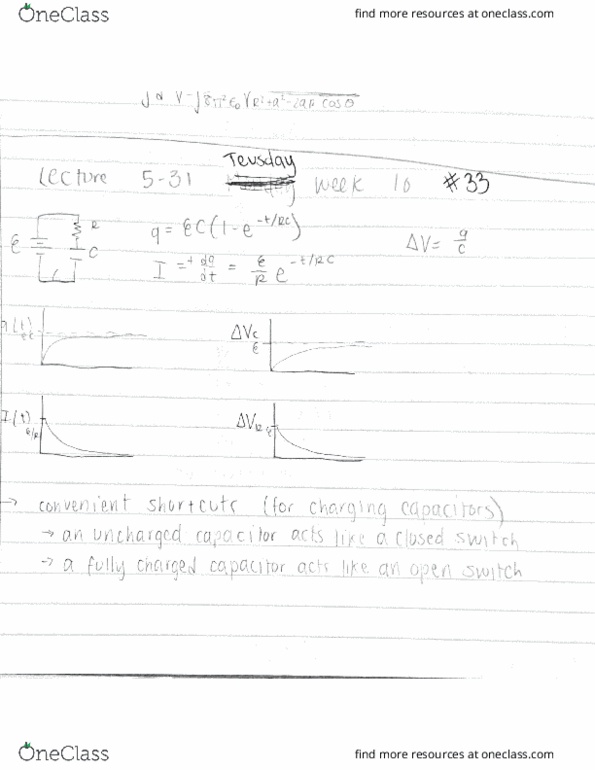 OneClass
find more resources at oneclass.com
Teusday
Lecture 5-31 week 10 #33
ℰ R C
q = ℰC(1-e^{-t/RC})
ΔV = q/C
I = + dq/dt = ℰ/R e^{-t/RC}
q(t) ℰC
ΔVc ℰ
I(t) ℰ/R
ΔV_R ℰ
→ convenient shortcuts (for charging capacitors)
→ an uncharged capacitor acts like a closed switch
→ a fully charged capacitor acts like an open switch
OneClass
find more resources at oneclass.com